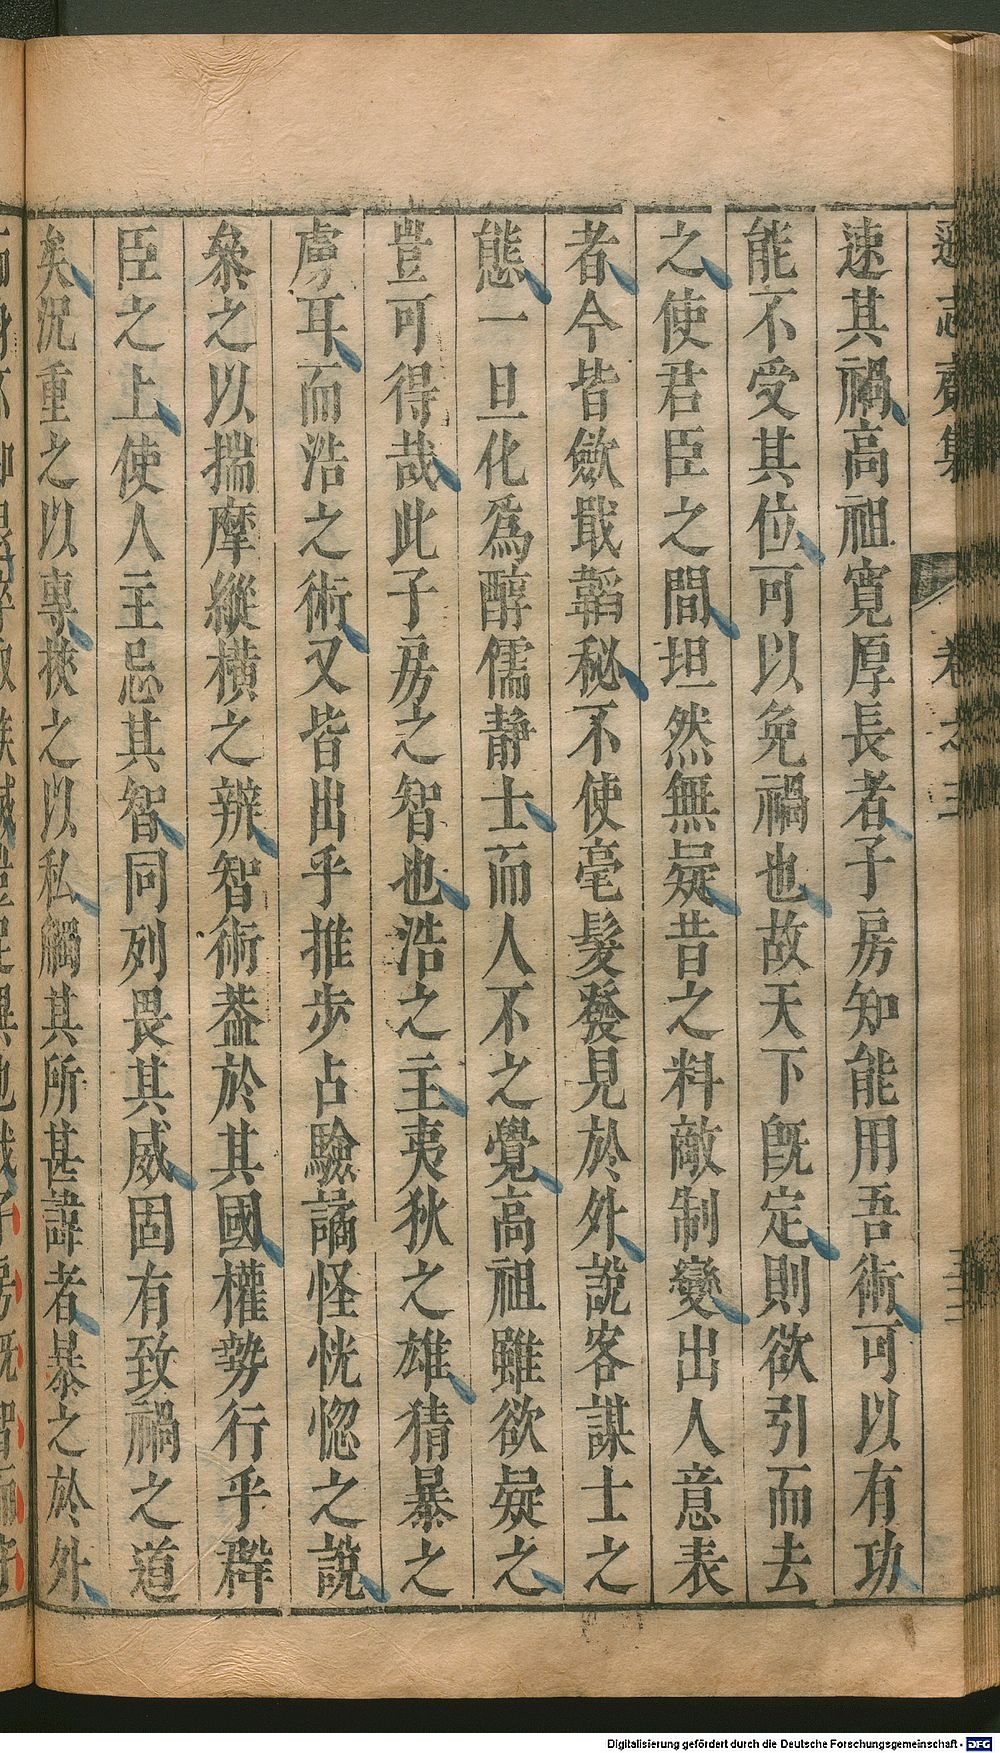 遜志齋集 卷之三 三
速其禍高祖寬厚長者子房知能用吾術可以有功
能不受其位可以免禍也故天下旣定則欲引而去
之使君臣之間坦然無疑昔之料敵制變出人意表
者今皆斂戢韜秘不使毫髮發見於外說客謀士之
態一旦化爲醇儒靜士而人不之覺高祖雖欲疑之
豈可得哉此子房之智也浩之主夷狄之雄猜暴之
虜耳而浩之術又皆出乎推步占驗譎怪恍惚之說
叅之以揣摩縱橫之辨智術葢於其國權勢行乎群
臣之上使人主忌其智同列畏其威固有致禍之道
矣況重之以專挾之以私觸其所甚諱者暴之於外
Digitalisierung gefördert durch die Deutsche Forschungsgemeinschaft - DFG